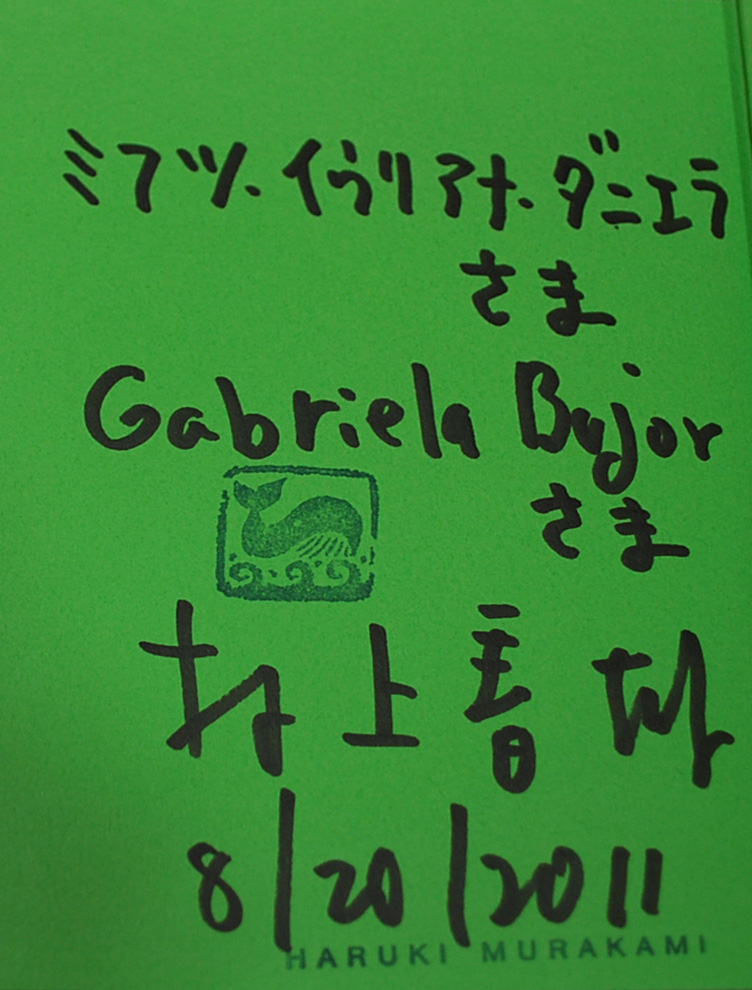 ミフツ・イウリアナ・ダニエラ
さま
Gabriela Bujor
さま
村上春樹
8/20/2011
HARUKI MURAKAMI